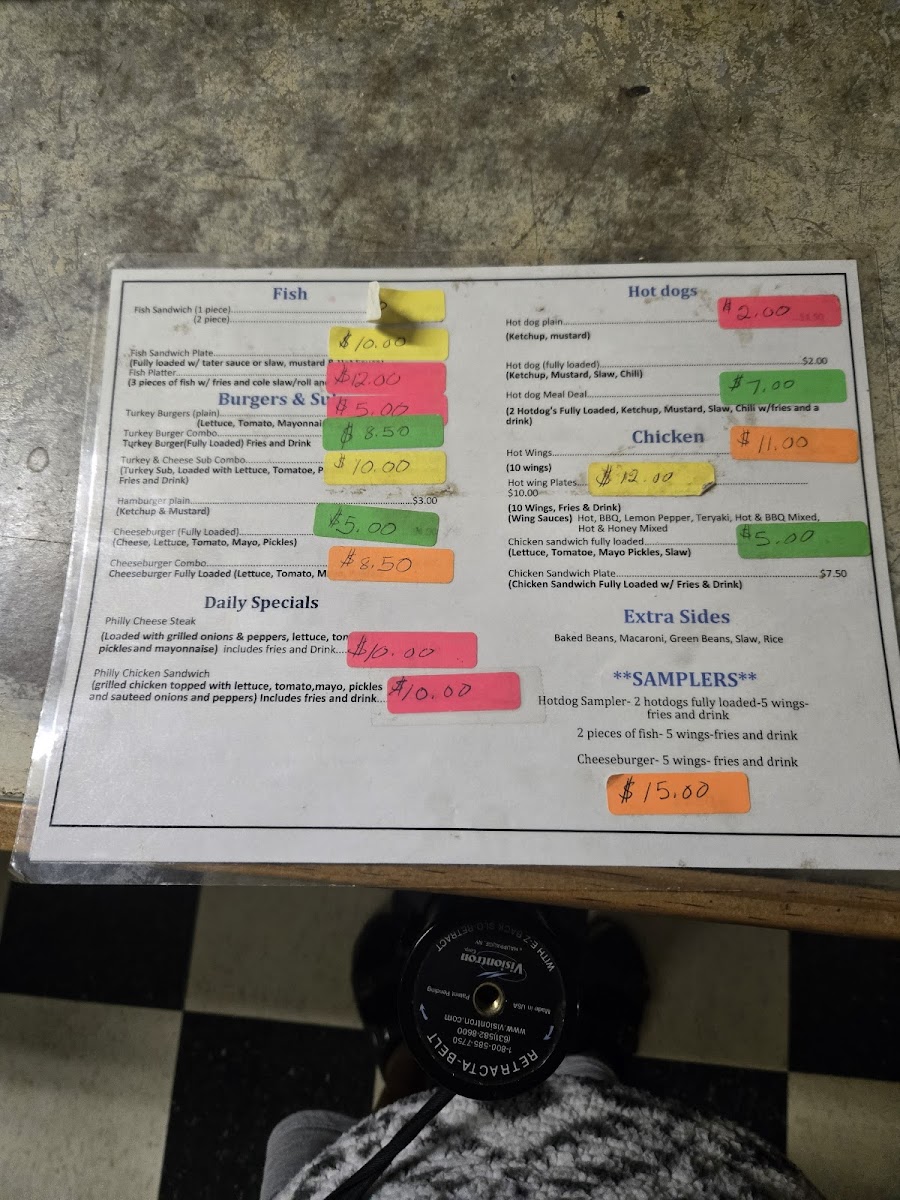 Fish
Fish Sandwich (1 piece)
(2 piece)
$10.00
Fish Sandwich Plate
(Fully loaded w/ tater sauce or slaw, mustard
Fish Platter
$12.00
(3 pieces of fish w/ fries and cole slaw/roll an
Burgers & Su
Turkey Burgers (plain)
$5.00
(Lettuce, Tomato, Mayonnai
Turkey Burger Combo
$8.50
Turkey Burger(Fully Loaded) Fries and Drink
Turkey & Cheese Sub Combo
$10.00
(Turkey Sub, Loaded with Lettuce, Tomatoe, P
Fries and Drink)
Hamburger plain $3.00
(Ketchup & Mustard)
Cheeseburger (Fully Loaded) $5.00
(Cheese, Lettuce, Tomato, Mayo, Pickles)
Cheeseburger Combo $8.50
Cheeseburger Fully Loaded (Lettuce, Tomato, M
Daily Specials
Philly Cheese Steak
(Loaded with grilled onions & peppers, lettuce, ton
pickles and mayonnaise) includes fries and Drink.... $10.00
Philly Chicken Sandwich
(grilled chicken topped with lettuce, tomato,mayo, pickles
and sauteed onions and peppers) Includes fries and drink.... $10.00
Hot dogs
Hot dog plain $2.00
(Ketchup, mustard)
Hot dog (fully loaded) $2.00
(Ketchup, Mustard, Slaw, Chili)
Hot dog Meal Deal $7.00
(2 Hotdog's Fully Loaded, Ketchup, Mustard, Slaw, Chili w/fries and a
drink)
Chicken
Hot Wings $11.00
(10 wings)
Hot wing Plates $12.00
$10.00
(10 Wings, Fries & Drink)
(Wing Sauces) Hot, BBQ, Lemon Pepper, Teryaki, Hot & BBQ Mixed,
Hot & Honey Mixed
Chicken sandwich fully loaded $5.00
(Lettuce, Tomatoe, Mayo Pickles, Slaw)
Chicken Sandwich Plate $7.50
(Chicken Sandwich Fully Loaded w/ Fries & Drink)
Extra Sides
Baked Beans, Macaroni, Green Beans, Slaw, Rice
**SAMPLERS**
Hotdog Sampler- 2 hotdogs fully loaded-5 wings-
fries and drink
2 pieces of fish- 5 wings-fries and drink
Cheeseburger- 5 wings- fries and drink
$15.00
RETRACTA-BELT
1-800-585-7750
(631)582-8600
www.visiontron.com
Made in USA
Patent Pending
Visiontron
Corp.
WITH E-Z BACK SLO-RETRACT